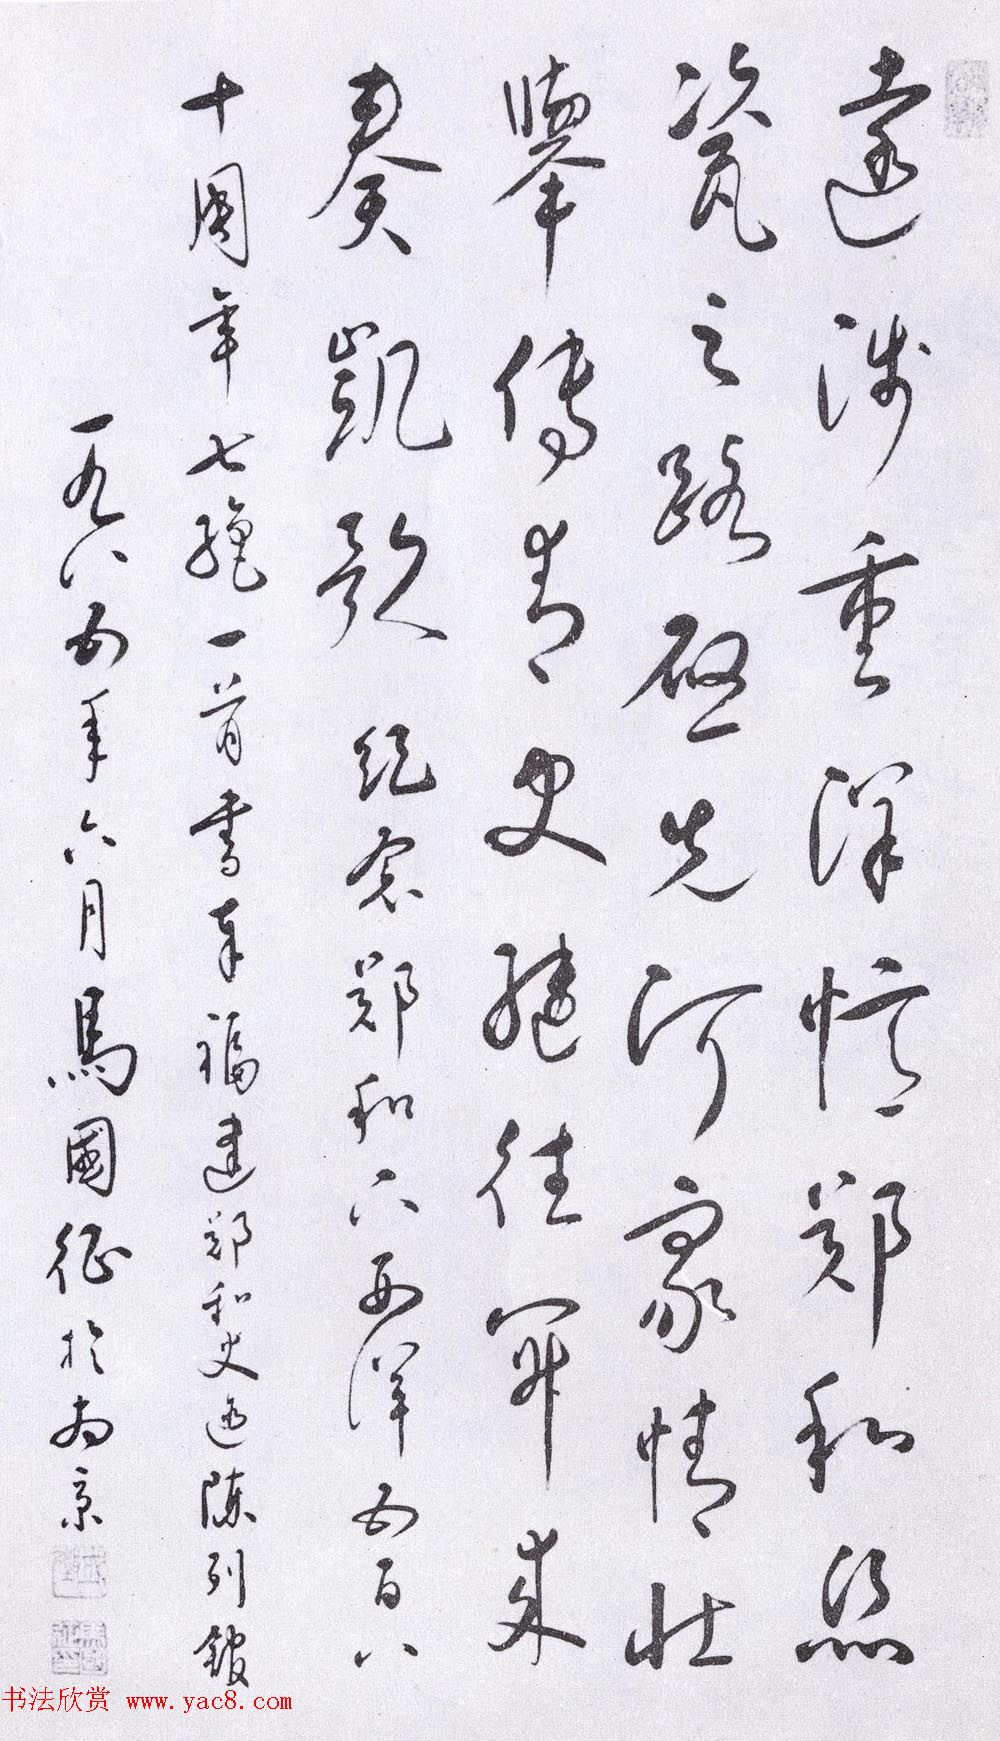 遠涉重洋憶鄭和絲
瓷之路啟先河豪情壯
舉傳青史繼往開来
奏凱歌 纪念郑和下西洋五百八
十周年七绝一首書奉福建郑和史迹陈列館
一九八五年六月馬國征於南京
书法欣赏 www.yac8.com